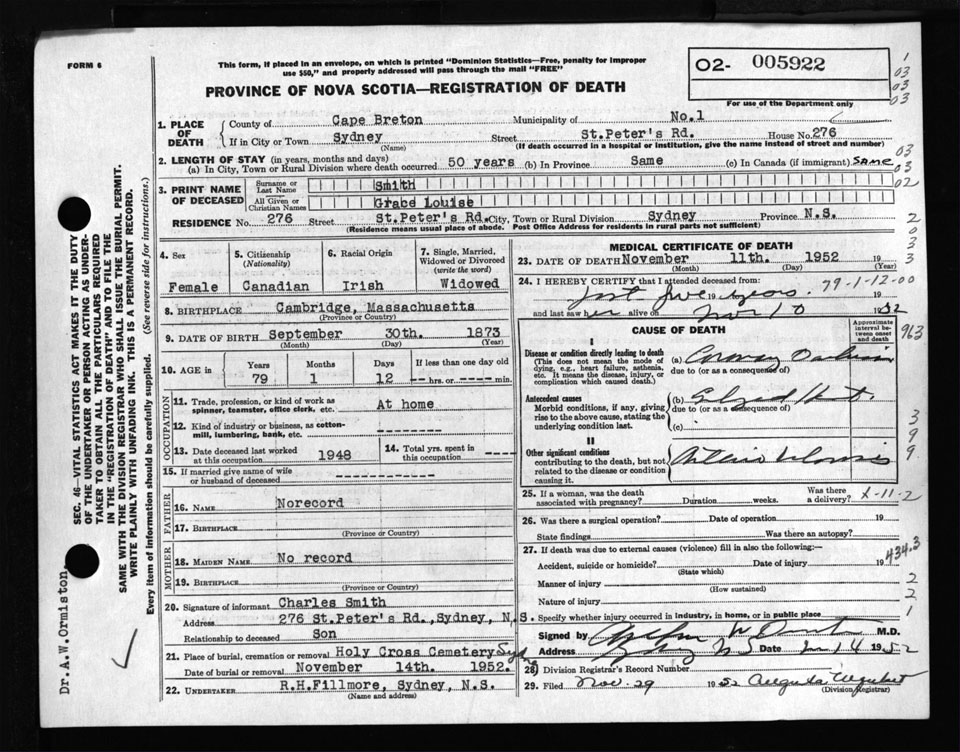 FORM 6
This form, if placed in an envelope, on which is printed "Dominion Statistics—Free, penalty for improper
use $50," and properly addressed will pass through the mail "FREE"
PROVINCE OF NOVA SCOTIA—REGISTRATION OF DEATH
O2- 005922
For use of the Department only
1. PLACE OF DEATH
County of Cape Breton Municipality of No.1
If in City or Town Sydney Street St.Peter's Rd. House No. 276
(Name) (If death occurred in a hospital or institution, give the name instead of street and number)
2. LENGTH OF STAY (in years, months and days)
(a) In City, Town or Rural Division where death occurred 50 years (b) In Province Same (c) In Canada (if immigrant) Same
3. PRINT NAME OF DECEASED
Surname or Last Name Smith
All Given or Christian Names Grabe Louise
RESIDENCE No. 276 Street St.Peter's Rd. City, Town or Rural Division Sydney Province N.S.
(Residence means usual place of abode. Post Office Address for residents in rural parts not sufficient)
4. Sex Female
5. Citizenship (Nationality) Canadian
6. Racial Origin Irish
7. Single, Married, Widowed or Divorced (write the word) Widowed
8. BIRTHPLACE Cambridge, Massachusetts
(Province or Country)
9. DATE OF BIRTH September 30th. 1873
(Month) (Day) (Year)
10. AGE in Years 79 Months 1 Days 12 If less than one day old hrs. or min.
OCCUPATION
11. Trade, profession, or kind of work as spinner, teamster, office clerk, etc. At home
12. Kind of industry or business, as cotton-mill, lumbering, bank, etc. ------
13. Date deceased last worked at this occupation 1948
14. Total yrs. spent in this occupation ------
15. If married give name of wife or husband of deceased
FATHER
16. NAME Norecord
17. BIRTHPLACE
(Province or Country)
MOTHER
18. MAIDEN NAME No record
19. BIRTHPLACE
(Province or Country)
20. Signature of informant Charles Smith
Address 276 St.Peter's Rd.,Sydney, N.S.
Relationship to deceased Son
21. Place of burial, cremation or removal Holy Cross Cemetery Syd
Date of burial or removal November 14th. 1952.
22. UNDERTAKER R.H.Fillmore, Sydney, N.S.
(Name and address)
MEDICAL CERTIFICATE OF DEATH
23. DATE OF DEATH November 11th. 1952 19
(Month) (Day) (Year)
24. I HEREBY CERTIFY that I attended deceased from: 79-1-12-00
19 years. 19
and last saw her alive on Nov 10 1952
CAUSE OF DEATH
Approximate interval between onset and death
I
Disease or condition directly leading to death
(This does not mean the mode of dying, e.g., heart failure, asthenia, etc. It means the disease, injury, or complication which caused death.)
(a)
due to (or as a consequence of)
Antecedent causes
Morbid conditions, if any, giving rise to the above cause, stating the underlying condition last.
(b)
due to (or as a consequence of)
(c)
II
Other significant conditions
contributing to the death, but not related to the disease or condition causing it.
25. If a woman, was the death associated with pregnancy? Duration weeks. Was there a delivery? X-11-2
26. Was there a surgical operation? Date of operation 19
State findings Was there an autopsy?
27. If death was due to external causes (violence) fill in also the following:
Accident, suicide or homicide? Date of injury 19
(State which)
434.3
Manner of injury
(How sustained)
Nature of injury
Specify whether injury occurred in industry, in home, or in public place
Signed by M.D.
Address Date 14 1952
28. Division Registrar's Record Number
29. Filed Nov. 29 1952
(Division Registrar)
SEC. 46—VITAL STATISTICS ACT MAKES IT THE DUTY
OF THE UNDERTAKER OR PERSON ACTING AS UNDER-
TAKER TO OBTAIN ALL THE PARTICULARS REQUIRED
IN THE "REGISTRATION OF DEATH" AND TO FILE THE
SAME WITH THE DIVISION REGISTRAR WHO SHALL ISSUE THE BURIAL PERMIT.
WRITE PLAINLY WITH UNFADING INK. THIS IS A PERMANENT RECORD.
Every item of information should be carefully supplied. (See reverse side for instructions.)
Dr.A.W.Ormiston,
1
03
03
03
03
03
02
2
0
3
3
963
3
9
9
2
2
1